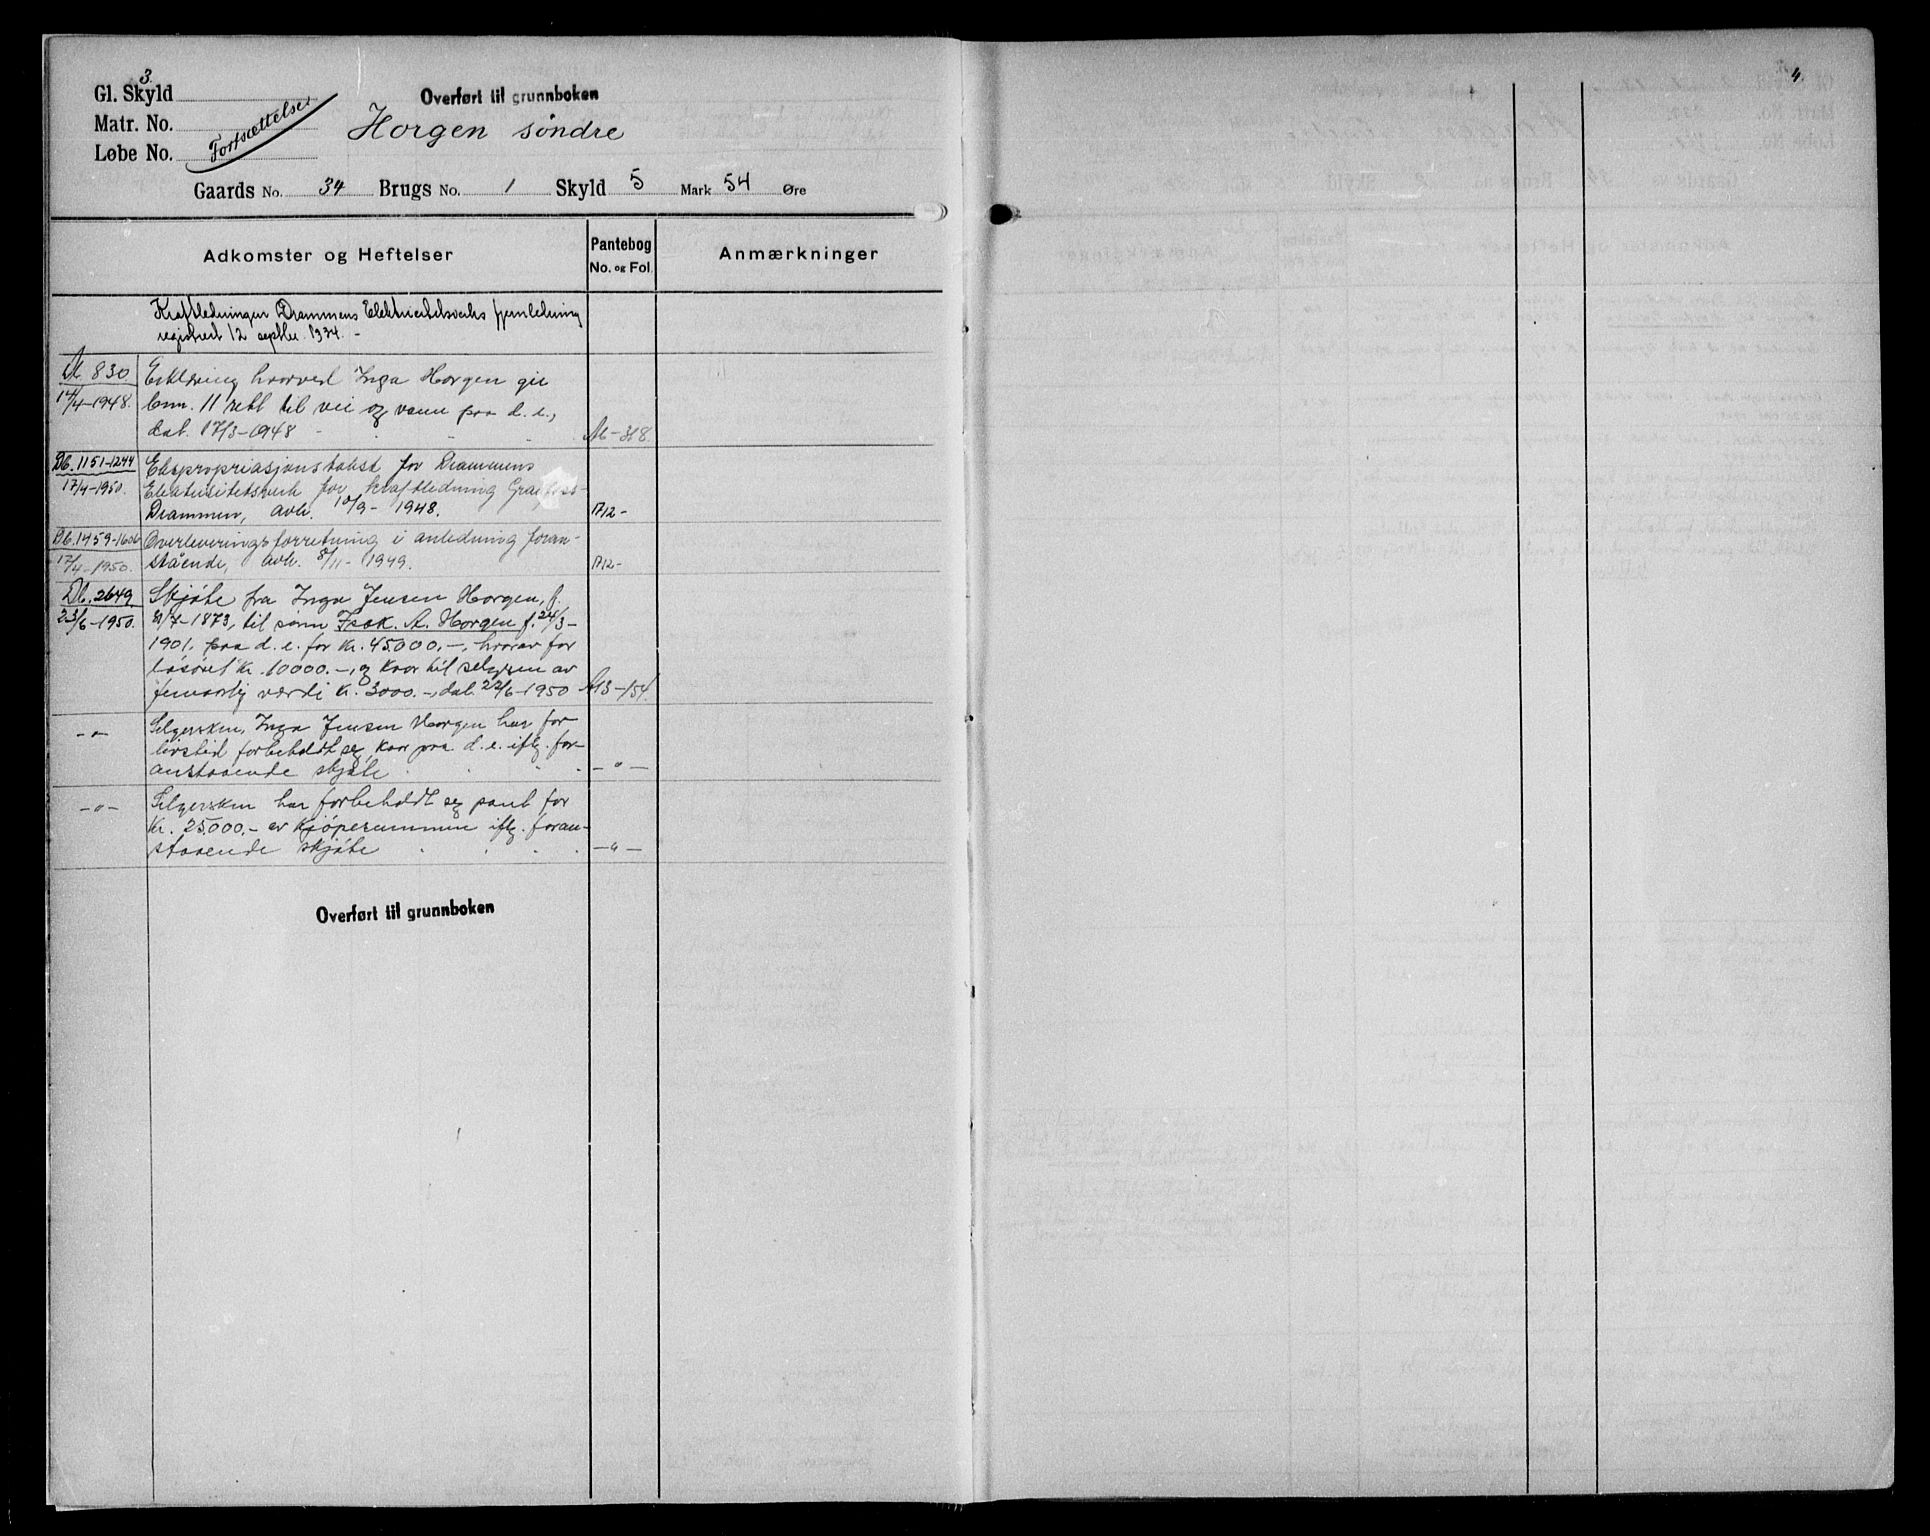 3.
Gl. Skyld
Matr. No.
Løbe No.
Fortsættelse
Overført til grunnboken
Horgen søndre
Gaards No. 34 Brugs No. 1 Skyld 5 Mark 54 Øre
Adkomster og Heftelser
Pantebog
No. og Fol.
Anmærkninger
Kraftledningen Drammens Elektricitetsverks fjernledning
registrert 12 septbr. 1934. -
830
14/4-1948.
Erklæring hvorved Inga Horgen gir
bnr. 11 rett til vei og vann paa d. e.,
dat. 17/3-1948
318
Db. 1151-1244
17/4-1950.
Ekspropriasjonstakst for Drammens
Elektrisitetsverk for kraftledning
Drammen, avh. 10/9-1948.
1712-
Db. 1459-1606
17/4-1950.
Overleveringsforretning i anledning foran-
stående, avh. 8/11-1949.
1712-
Db. 2649
23/6-1950.
Skjøte fra Inga Jensen Horgen, f.
1873, til sønn Isak. A. Horgen f. 24/3-
1901. paa d. e. for kr. 45.000.-, hvorav for
løsøret kr. 10000.-, og kaar til selgeren av
femaarlig værdi kr. 3000.-, dat. 22/6-1950
A13-154.
-"-
Selgersken, Inga Jensen Horgen har for
livstid forbeholdt seg kaar paa d. e. iflg. for-
anstaaende skjøte
-"-
-"-
Selgersken har forbeholdt seg pant for
kr. 25.000.- av kjøpesummen iflg. foran-
staaende skjøte
-"-
Overført til grunnboken
4.